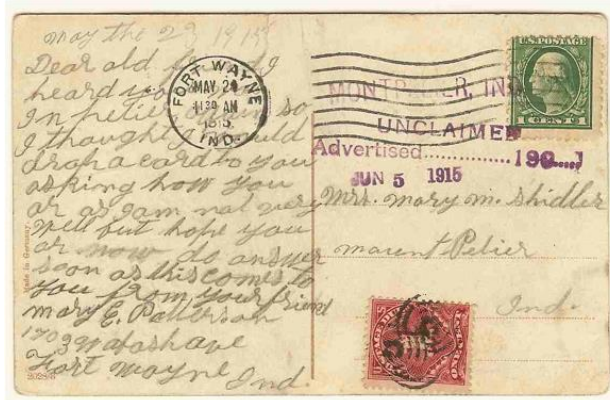 may the 23 1915
Dear old friend I
heard you
In petier so
I thought I would
drop a card to you
asking how you
ar as I am not very
well but hope you
ar now do answer
soon as this comes to
you from your friend
mary E. Patterson
1703 Wabash ave
Fort Wayne Ind
Made in Germany
FORT WAYNE
MAY 24
1130 AM
1915
IND.
U.S. POSTAGE
1 CENT 1
MONTPELIER, IND.
UNCLAIMED
Advertised............... 190....
JUN 5 1915
Mrs. mary m. Shidler
mount Pelier
Ind.